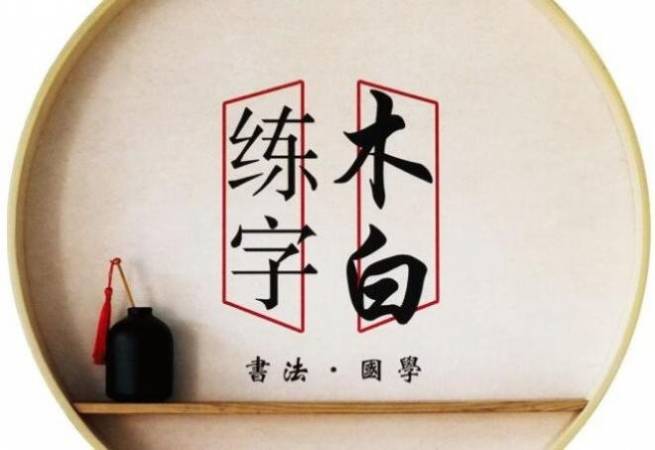 木白
练字
書法·國學